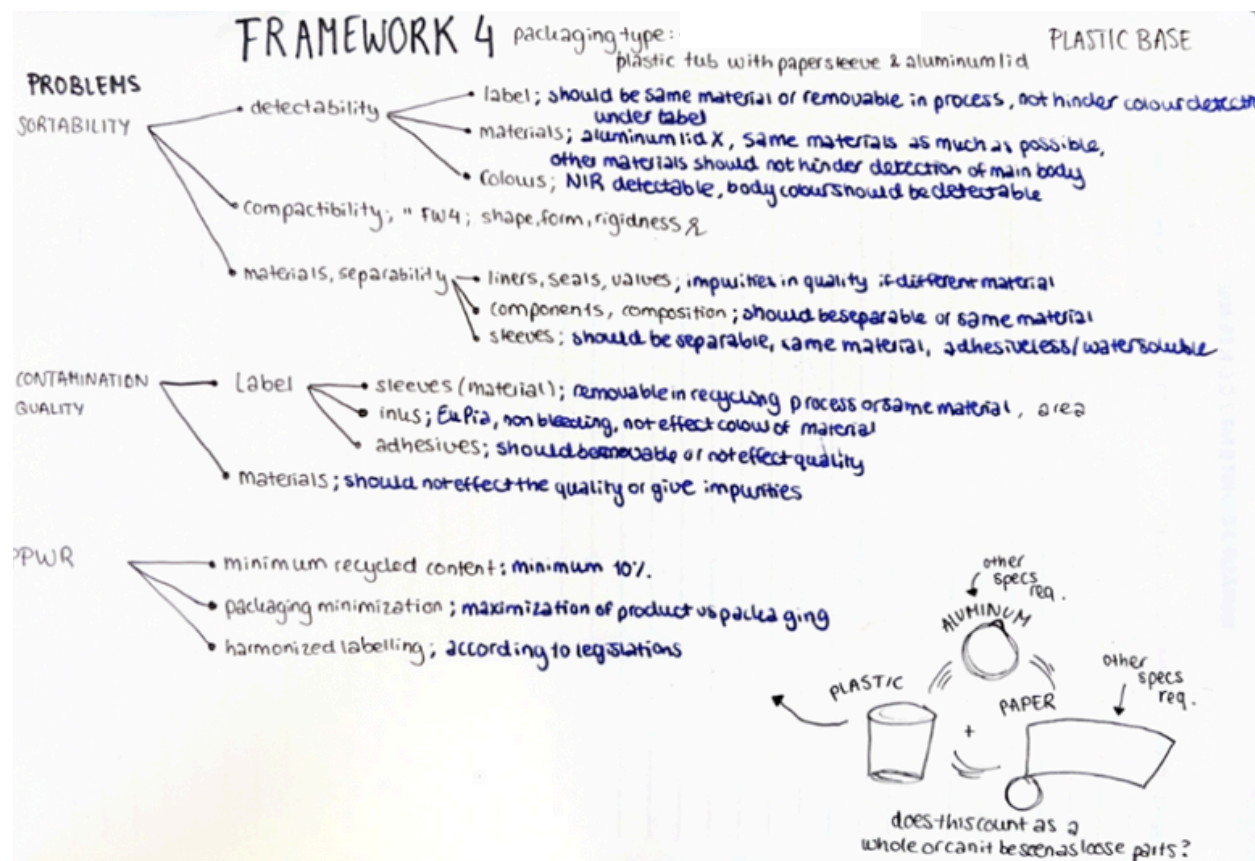 FRAMEWORK 4 packaging type:
plastic tub with paper sleeve & aluminum lid
PLASTIC BASE
PROBLEMS
SORTABILITY
detectability
label; should be same material or removable in process, not hinder colour detecti
under label
materials; aluminum lid X, same materials as much as possible,
other materials should not hinder detection of main body
colours; NIR detectable, body colour should be detectable
compactibility; " FW4; shape, form, rigidness &
materials, separability
liners, seals, valves; impurities in quality if different material
components, composition; should be separable or same material
sleeves; should be separable, same material, adhesiveless/water soluble
CONTAMINATION
QUALITY
Label
sleeves (material); removable in recycling process or same material, area
inks; EuPia, non bleeding, not effect colour of material
adhesives; should be removable or not effect quality
materials; should not effect the quality or give impurities
PPWR
minimum recycled content: minimum 10%.
packaging minimization; maximization of product vs packaging
harmonized labelling; according to legislations
other
specs
req.
ALUMINUM
other
specs
req.
PLASTIC
PAPER
+
does this count as a
whole or can it be seen as loose parts?